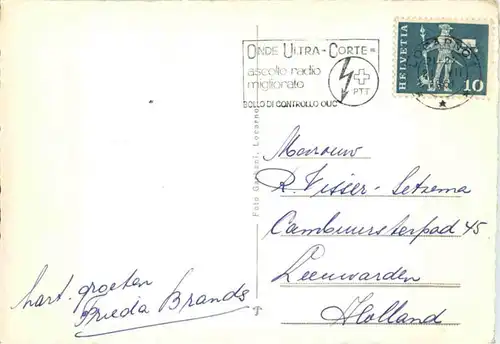 ONDE ULTRA-CORTE =
ascolto radio
migliorato
PTT
BOLLO DI CONTROLLO OUC
LOCARNO
HELVETIA
10
Foto Locarno
Mevrouw
R. Visser-Setzema
Cambuursterpad 45
Leeuwarden
Holland
hart. groeten
Frieda Brands